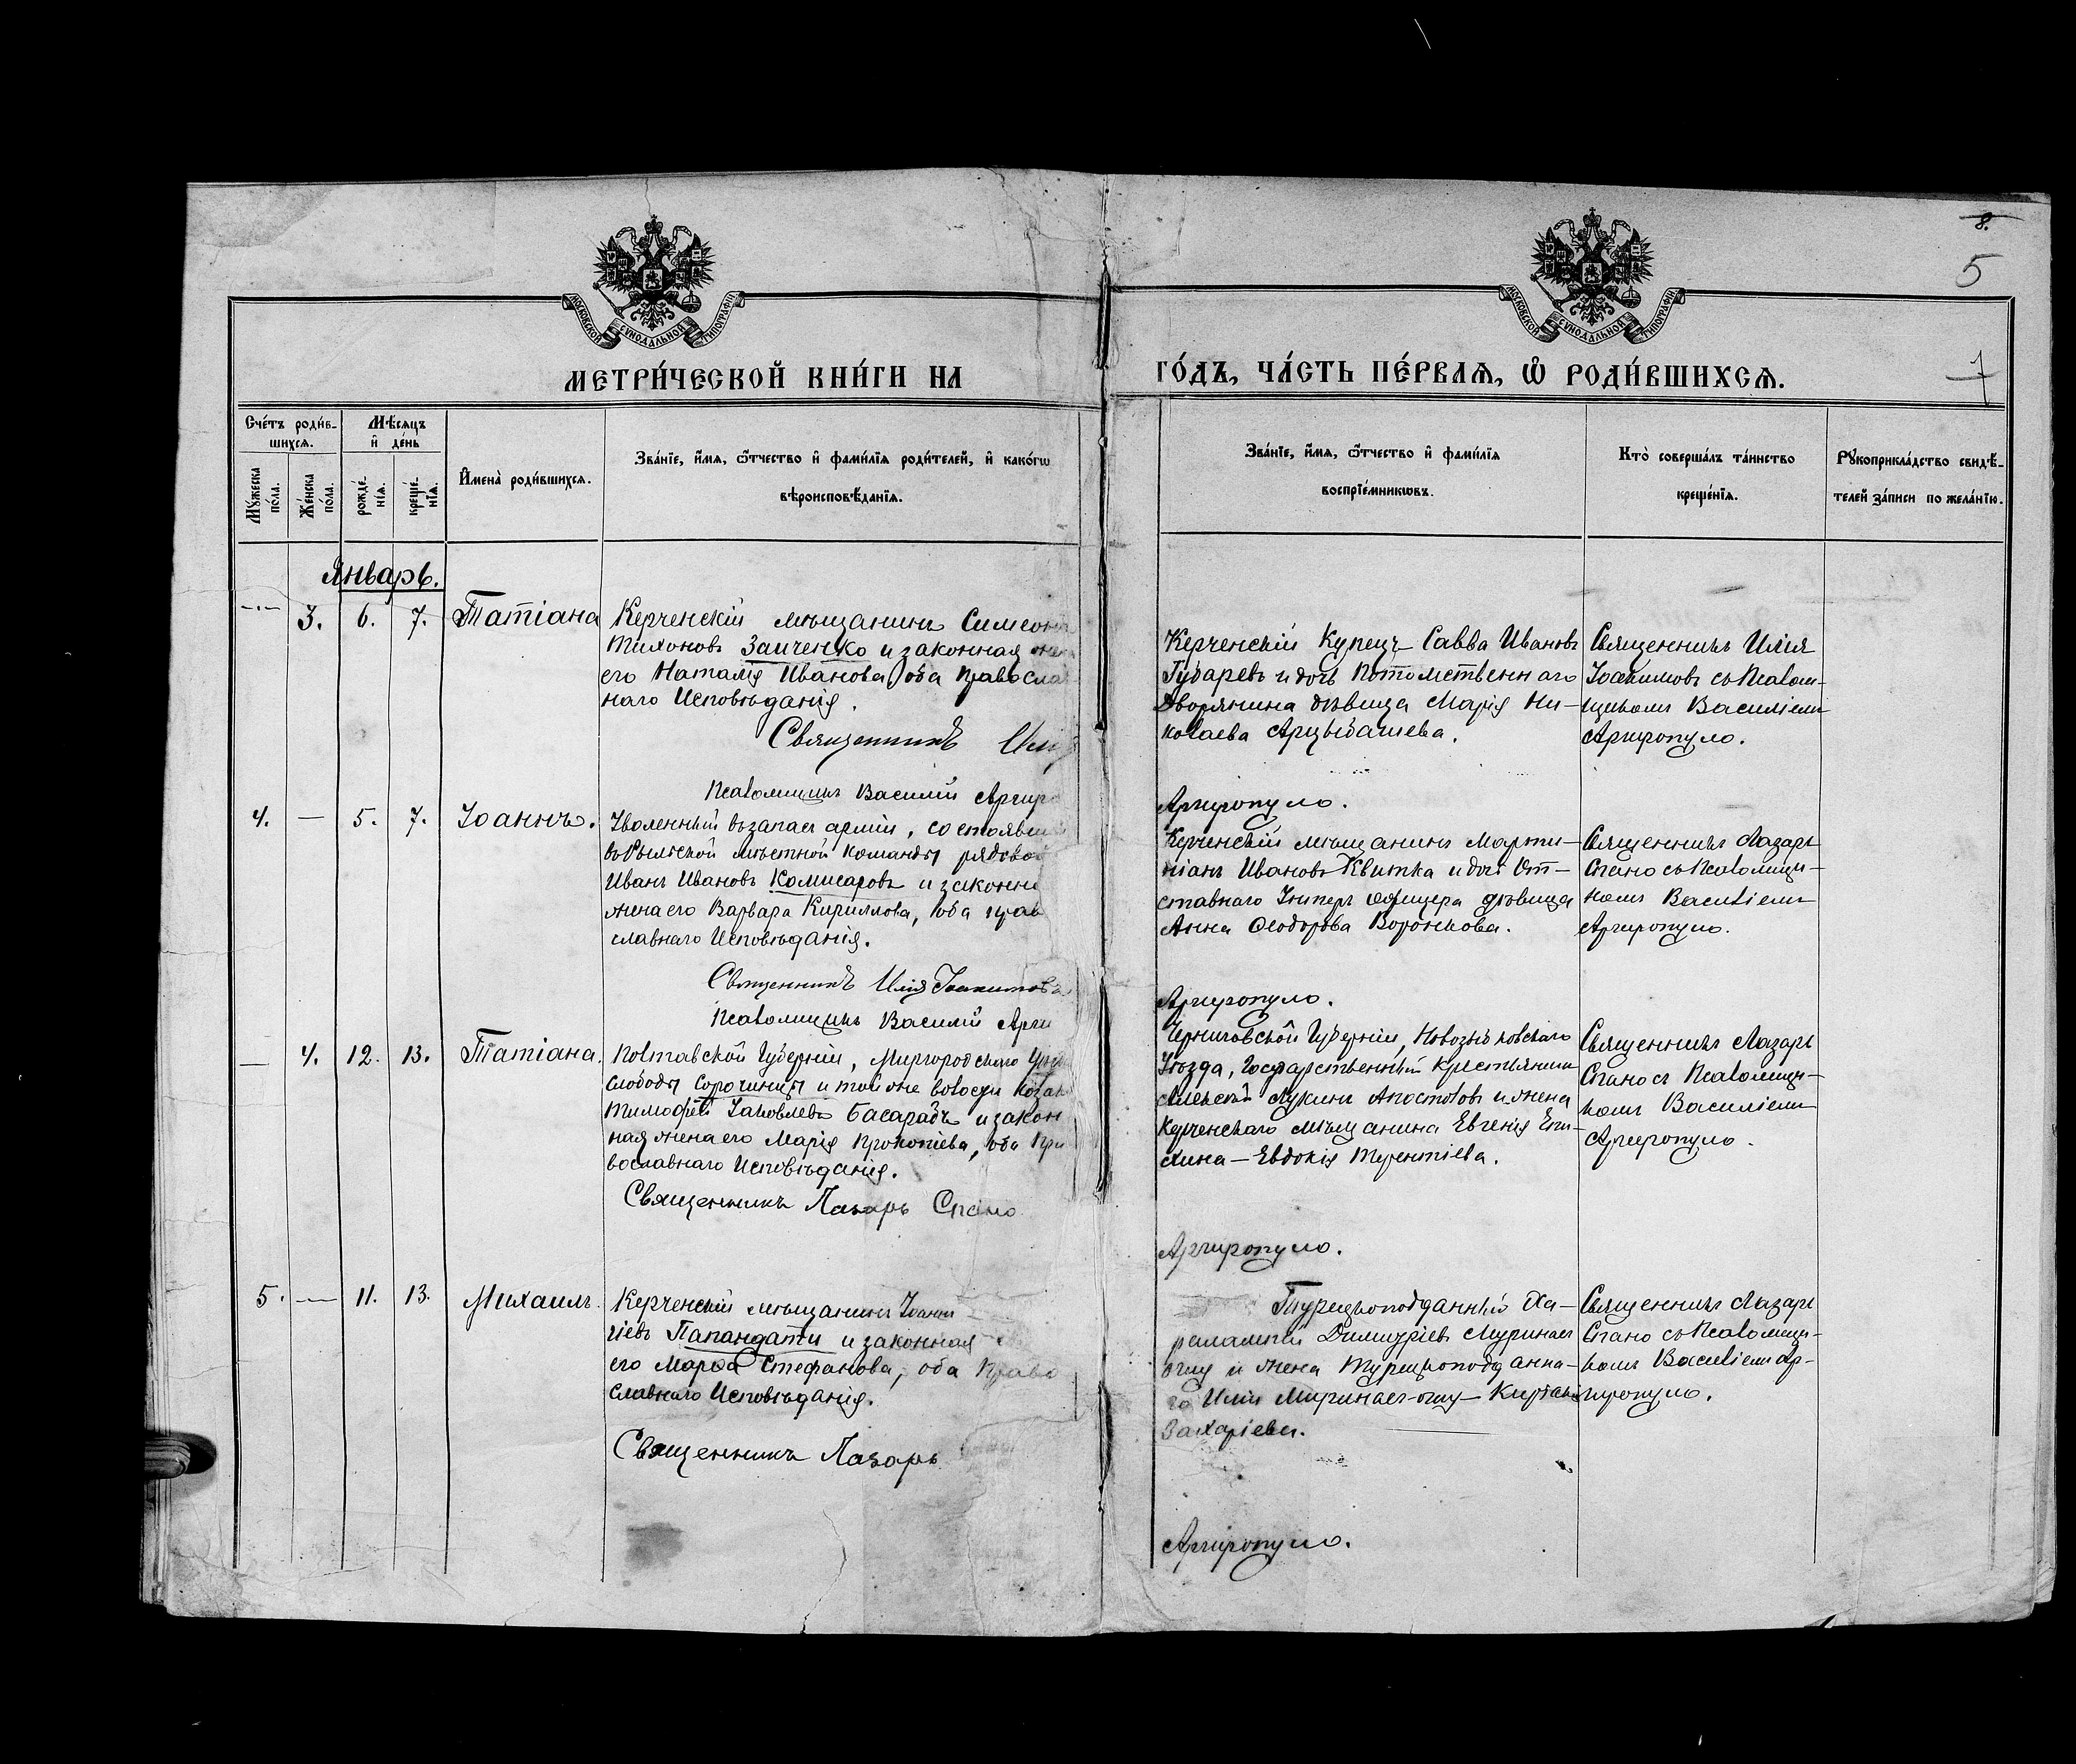 8.
5
7
МОСКОВСКОЙ СѴНОДАЛЬНОЙ ТИПОГРАФІИ
МОСКОВСКОЙ СѴНОДАЛЬНОЙ ТИПОГРАФІИ
МЕТРИ́ЧЕСКОЙ КНИ́ГИ НА
ГО́ДЪ, ЧА́СТЬ ПЕ́РВАѦ, Ѡ РОДИ́ВШИХСѦ.
Сче́тъ роди́в-
шихсѧ.
Мѣ́сѧцъ
и҆ де́нь
Мꙋ́жеска
по́ла.
Же́нска
по́ла.
рожде́-
нїѧ.
креще́-
нїѧ.
И҆мена̀ роди́вшихсѧ.
Зва́нїе, и҆́мѧ, ѻ҆́тчество и҆ фами́лїѧ роди́телей, и҆ како́гѡ
вѣроисповѣ́данїѧ.
Зва́нїе, и҆́мѧ, ѻ҆́тчество и҆ фами́лїѧ
воспрїе́мникѡвъ.
Кто̀ соверша́лъ та́инство
креще́нїѧ.
Рꙋкоприкла́дство свидѣ́-
телей за́писи по жела́нїю.
Январь.
3. 6. 7. Татіана
Керченскій мѣщанинъ Симеонъ
Тихоновъ Заиченко и законная
его Наталія Иванова, оба Православ
наго Исповѣданія.
Священникъ
Псаломщикъ Василій Аргиро
Керченскій Купецъ Савва Ивановъ
Губаревъ и дочь Потомственнаго
Дворянина дѣвица Марія Ни-
колаева Арцыбашева.
Аргиропуло.
Священникъ Илія
Іоакимовъ съ Псалом-
щикомъ Василіемъ
Аргиропуло.
4. — 5. 7. Іоаннъ.
Уволенный въ запасъ арміи, состоявш
въ Рыльской мѣстной команды рядовой
Иванъ Ивановъ Комисаровъ и законн
жена его Варвара Кириллова, оба прав
славнаго Исповѣданія.
Священникъ Илія Іоакимовъ
Псаломщикъ Василій Арги
Керченскій мѣщанинъ Марти-
ніанъ Ивановъ Квитка и дочь От-
ставнаго Унтеръ Офицера дѣвица
Анна Ѳеодорова Воронкова.
Аргиропуло.
Священникъ Лазарь
Спано съ Псаломщи-
комъ Василіемъ
Аргиропуло.
— 4. 12. 13. Татіана.
Полтавской Губерніи, Миргородскаго
слободы Сорочинцы и той же волости Козак
Тимофей Яковлевъ Басарабъ и закон
ная жена его Марія Прокопіева, оба Пра
вославнаго Исповѣданія.
Священникъ Лазарь Спано
Черниговской Губерніи, Новозыбковскаго
Уѣзда, Государственный крестьянинъ
Алексій Лукинъ Апостоловъ и жена
Керченскаго мѣщанина Евгенія Епи-
хина — Евдокія Терентіева.
Аргиропуло.
Священникъ Лазарь
Спано съ Псаломщи-
комъ Василіемъ
Аргиропуло.
5. — 11. 13. Михаилъ.
Керченскій мѣщанинъ Іоанн
гіевъ Папандати и законная
его Марфа Стефанова, оба Право
славнаго Исповѣданія.
Священникъ Лазарь
Турецкоподданный Ха-
рлампій Димитріевъ
оглу и жена Турецкоподданна-
го Иліи
Захаріева.
Аргиропуло.
Священникъ Лазарь
Спано съ Псаломщи-
комъ Василіемъ Ар-
гиропуло.